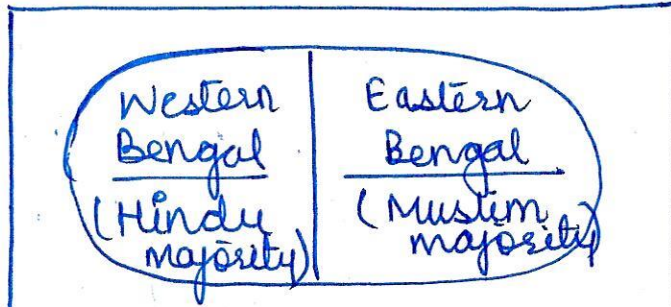 Western
Bengal
(Hindu
majority)
Eastern
Bengal
(Muslim
majority)